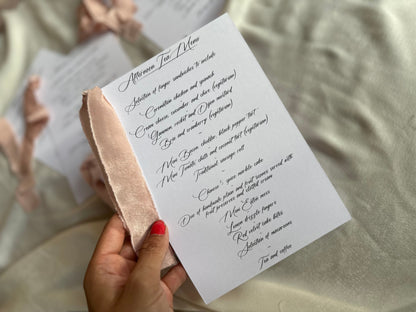 Afternoon Tea Menu
Selection of finger sandwiches to include
~
Coronation chicken and spinach
Cream cheese, cucumber and chive (vegetarian)
Gammon, rocket and Dijon mustard
Brie and cranberry (vegetarian)
~
Mini Bacon, cheddar, black pepper tart
Mini Tomato, chilli and coconut tart (vegetarian)
Traditional sausage roll
~
marble cake
Duo of handmade plain and fruit scones served with
fruit preserves and clotted cream
Mini Eton mess
Lemon drizzle fingers
Red velvet cake bites
Selection of macaroons
~
Tea and coffee